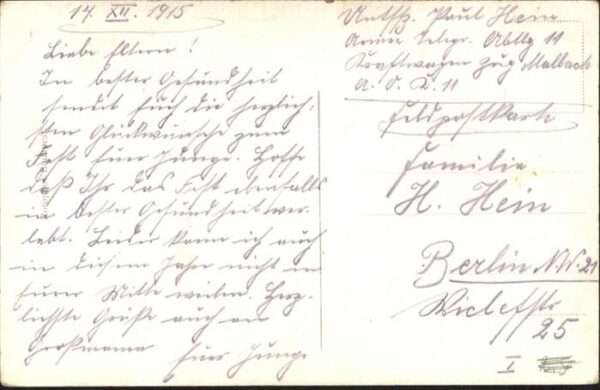 14. XII. 1915
Liebe Eltern!
In bester Gesundheit
sendet Euch die herzlich-
sten Glückwünsche zum
Fest Euer Junge. Hoffe
daß Ihr das Fest ebenfalls
in bester Gesundheit ver-
lebt. Leider kann ich auch
in diesem Jahre nicht in
Eurer Mitte weilen. Herz-
lichste Grüße auch an
Großmama Euer Junge
Untffz. Paul Hein
Armee Telegr. Abtlg 11
Kraftwagen Zug
A. O. K. 11
Feldpostkarte
Familie
H. Hein
Berlin N.W. 21
Wiclefstr
25
I